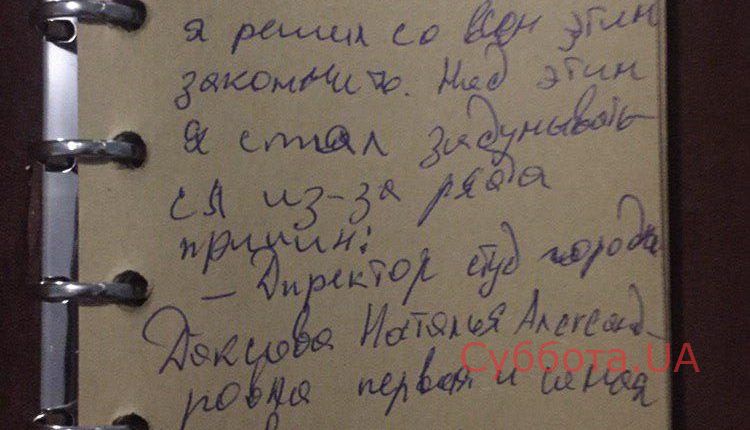 я решил со всем этим
закончить. Над этим
я стал задумывать
ся из-за ряда
причин:
– Директор студ города
Наталья Александ-
ровна первая и самая
Суббота.UA